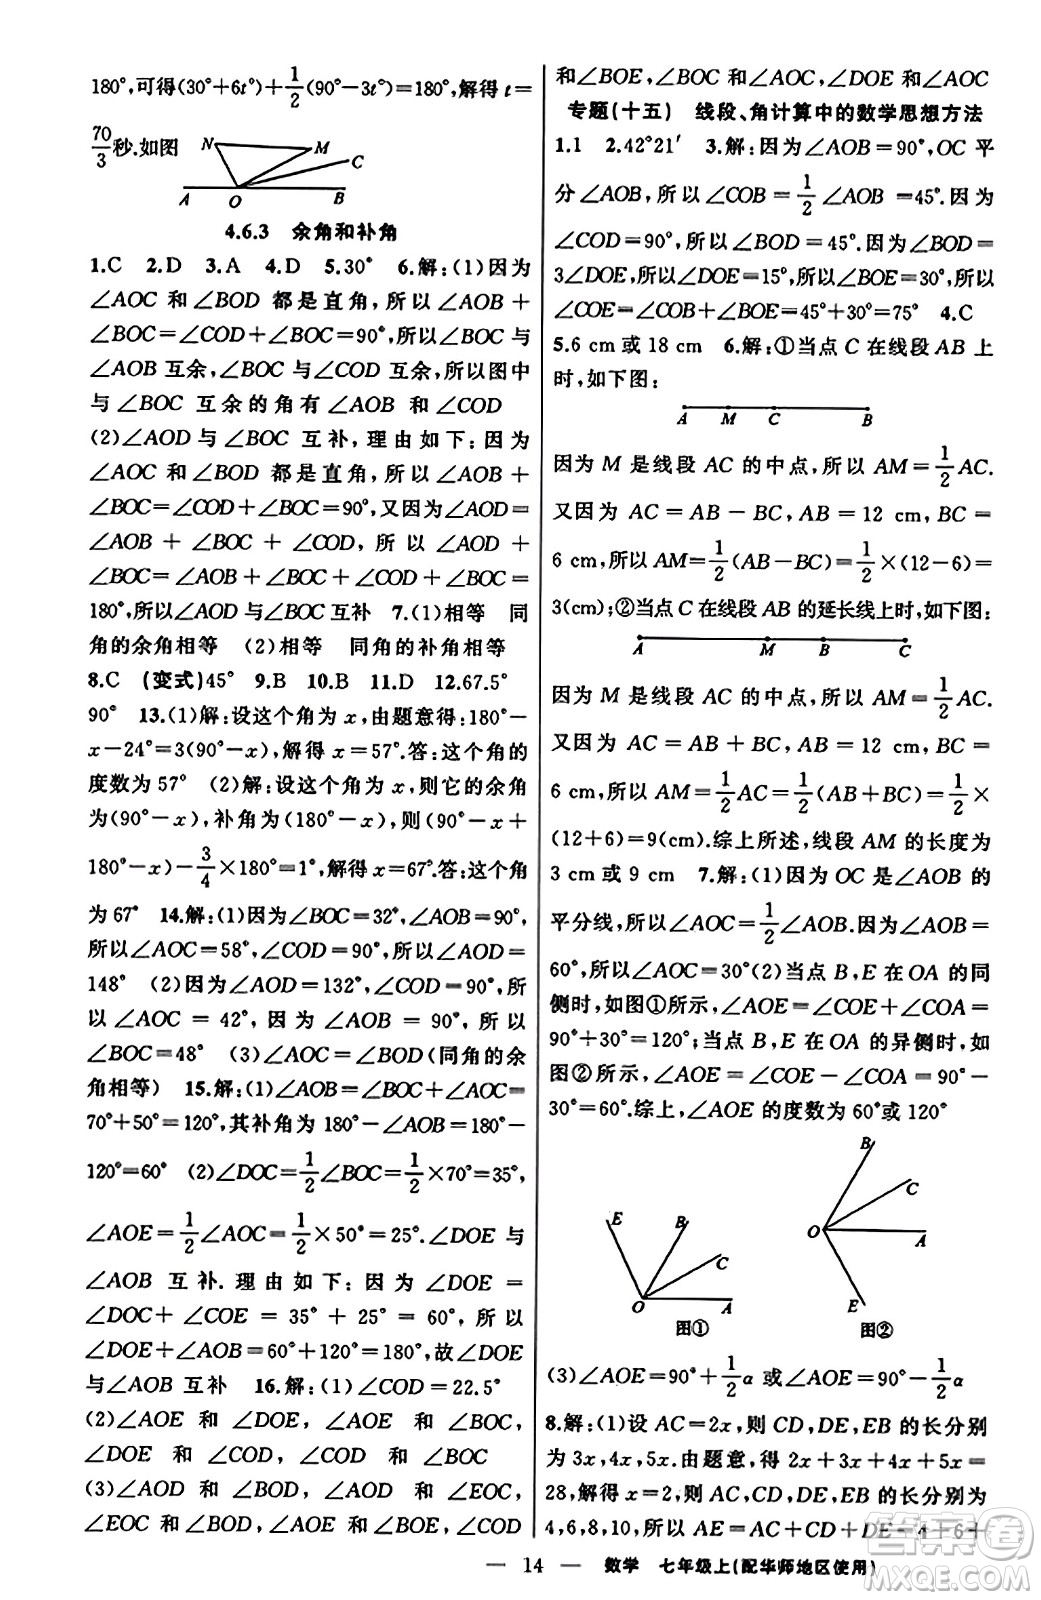 180°,可得(30°+6t°)+1/2(90°-3t°)=180°,解得 t=
70/3秒.如图
N M C
A O B
4.6.3 余角和补角
1.C 2.D 3.A 4.D 5.30° 6.解:(1)因为
∠AOC 和∠BOD 都是直角,所以∠AOB+
∠BOC=∠COD+∠BOC=90°,所以∠BOC与
∠AOB互余,∠BOC与∠COD互余,所以图中
与∠BOC 互余的角有∠AOB 和∠COD
(2)∠AOD与∠BOC 互补,理由如下:因为
∠AOC 和∠BOD 都是直角,所以∠AOB+
∠BOC=∠COD+∠BOC=90°,又因为∠AOD=
∠AOB + ∠BOC + ∠COD,所以∠AOD+
∠BOC=∠AOB+∠BOC+∠COD+∠BOC=
180°,所以∠AOD与∠BOC互补 7.(1)相等 同
角的余角相等 (2)相等 同角的补角相等
8.C (变式)45° 9.B 10.B 11.D 12.67.5°
90° 13.(1)解:设这个角为x,由题意得:180°-
x-24°=3(90°-x),解得x=57°.答:这个角的
度数为57° (2)解:设这个角为x,则它的余角
为(90°-x),补角为(180°-x),则(90°-x+
180°-x)-3/4×180°=1°,解得x=67°.答:这个角
为67° 14.解:(1)因为∠BOC=32°,∠AOB=90°,
所以∠AOC=58°,∠COD=90°,所以∠AOD=
148° (2)因为∠AOD=132°,∠COD=90°,所
以∠AOC = 42°,因为∠AOB = 90°,所以
∠BOC=48° (3)∠AOC=∠BOD(同角的余
角相等) 15.解:(1)∠AOB=∠BOC+∠AOC=
70°+50°=120°,其补角为180°-∠AOB=180°-
120°=60° (2)∠DOC=1/2∠BOC=1/2×70°=35°,
∠AOE=1/2∠AOC=1/2×50°=25°.∠DOE与
∠AOB 互补.理由如下:因为∠DOE =
∠DOC + ∠COE = 35° + 25° = 60°,所以
∠DOE+∠AOB=60°+120°=180°,故∠DOE
与∠AOB互补 16.解:(1)∠COD=22.5°
(2)∠AOE 和 ∠DOE,∠AOE 和 ∠BOC,
∠DOE 和 ∠COD,∠BOC 和 ∠COD
(3)∠AOE 和 ∠AOC,∠AOC 和 ∠EOC,
∠EOC 和∠BOD,∠AOE 和∠BOD,∠COD
和∠BOE,∠BOC 和∠AOC,∠DOE 和∠AOC
专题(十五) 线段、角计算中的数学思想方法
1.1 2.42°21′ 3.解:因为∠AOB=90°,OC 平
分∠AOB,所以∠COB = 1/2∠AOB =45°.因为
∠COD=90°,所以∠BOD=45°.因为∠BOD=
3∠DOE,所以∠DOE=15°,所以∠BOE=30°,所以
∠COE=∠COB+∠BOE=45°+30°=75° 4.C
5.6 cm或18 cm 6.解:①当点C在线段AB上
时,如下图:
A M C B
因为M是线段AC的中点,所以AM=1/2AC.
又因为 AC=AB-BC,AB=12 cm,BC=
6 cm,所以AM=1/2(AB-BC)=1/2×(12-6)=
3(cm);②当点C在线段AB的延长线上时,如下图:
A M B C
因为M是线段AC的中点,所以AM=1/2AC.
又因为 AC=AB+BC,AB=12 cm,BC=
6 cm,所以AM=1/2AC=1/2(AB+BC)=1/2×
(12+6)=9(cm).综上所述,线段AM的长度为
3 cm或9 cm 7.解:(1)因为OC是∠AOB的
平分线,所以∠AOC=1/2∠AOB.因为∠AOB=
60°,所以∠AOC=30°(2)当点B,E在OA的同
侧时,如图①所示,∠AOE=∠COE+∠COA=
90°+30°=120°;当点B,E在OA的异侧时,如
图②所示,∠AOE=∠COE-∠COA=90°-
30°=60°.综上,∠AOE的度数为60°或120°
E B C
O A
图①
B C
O A
E
图②
(3)∠AOE=90°+1/2α或∠AOE=90°-1/2α
8.解:(1)设AC=2x,则CD,DE,EB的长分别
为3x,4x,5x.由题意,得2x+3x+4x+5x=
28,解得x=2,则AC,CD,DE,EB的长分别为
4,6,8,10,所以AE=AC+CD+DE=4+6+
— 14 — 数学 七年级上(配华师地区使用)
答案圈
MXQE.COM